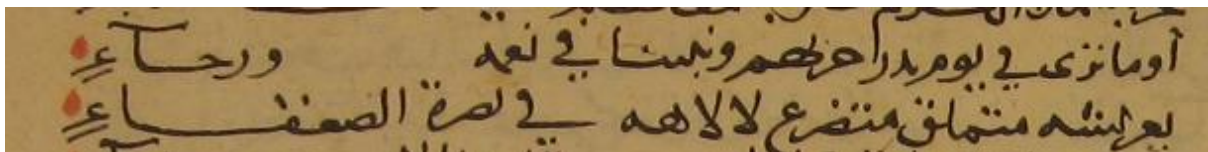 أوما نرى في يوم بدر احزبهم ونبينا في نعمة ورخآء
متملق متضرع لالاهه في نصرة الضعفاء